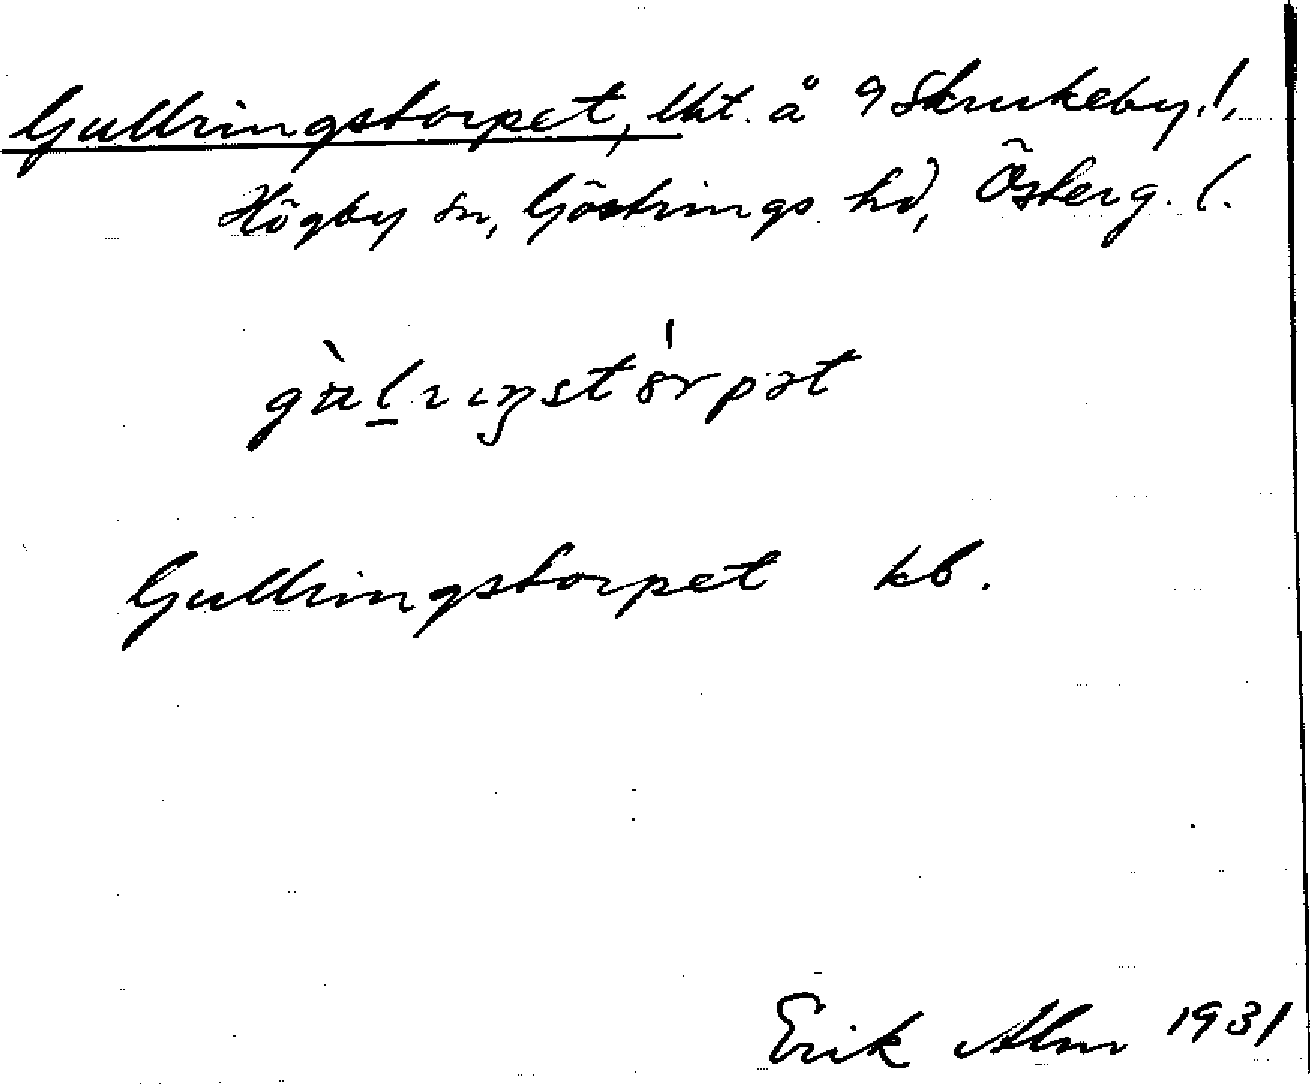 Gullringstorpet, lht. å 9 Skrukeby, l.,
Högby sn, Göstrings hd, Österg. l.
Gullringstorpet kb.
Erik Alm 1931